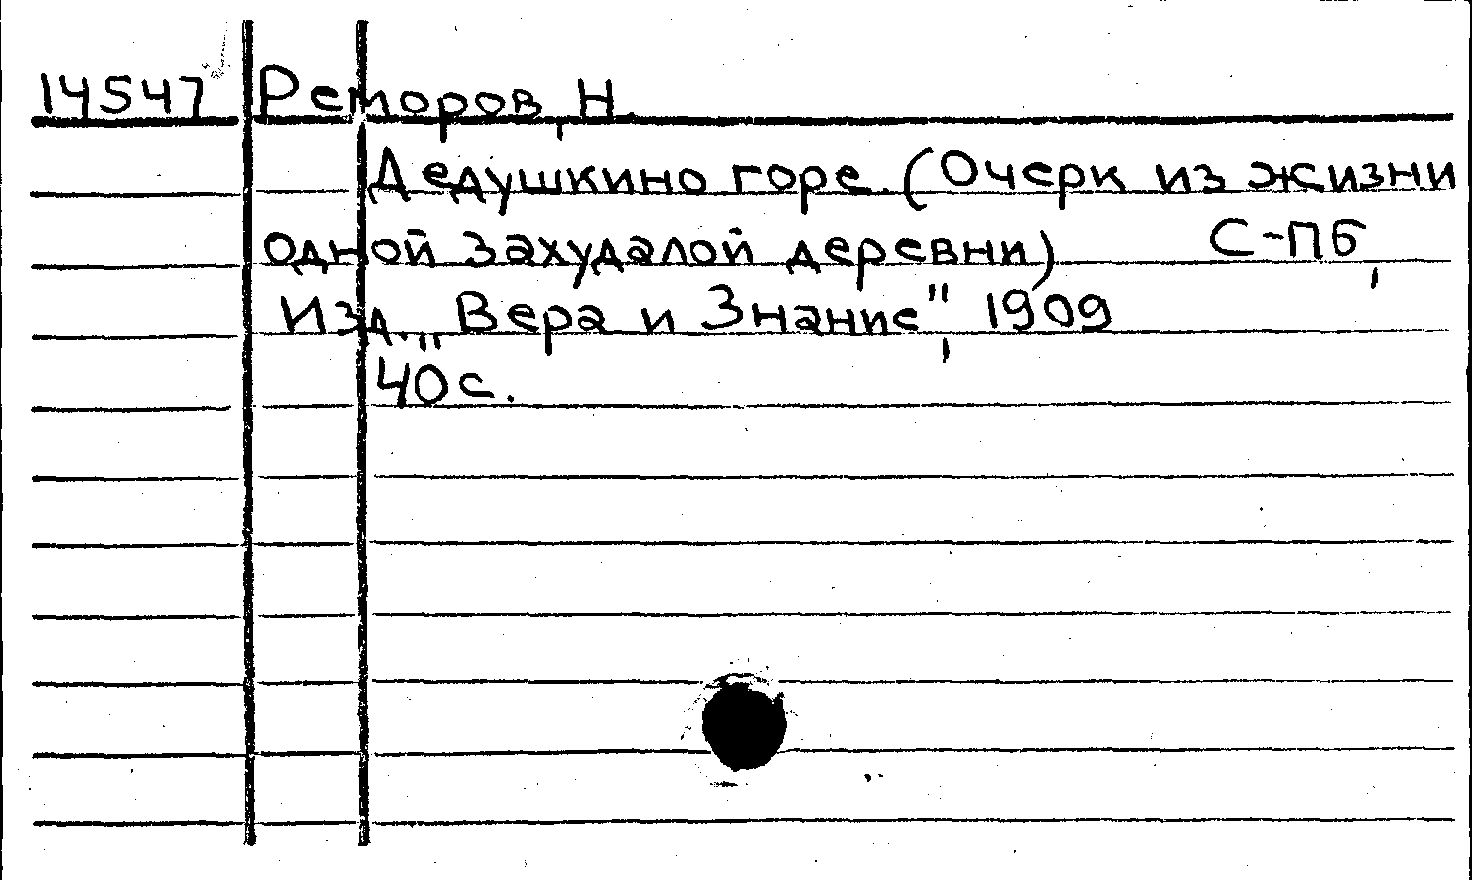 14547 Реторов, Н.
Дедушкино горе. (Очерк из жизни
одной захудалой деревни) С-Пб,
Изд. „Вера и Знание", 1909
40 с.